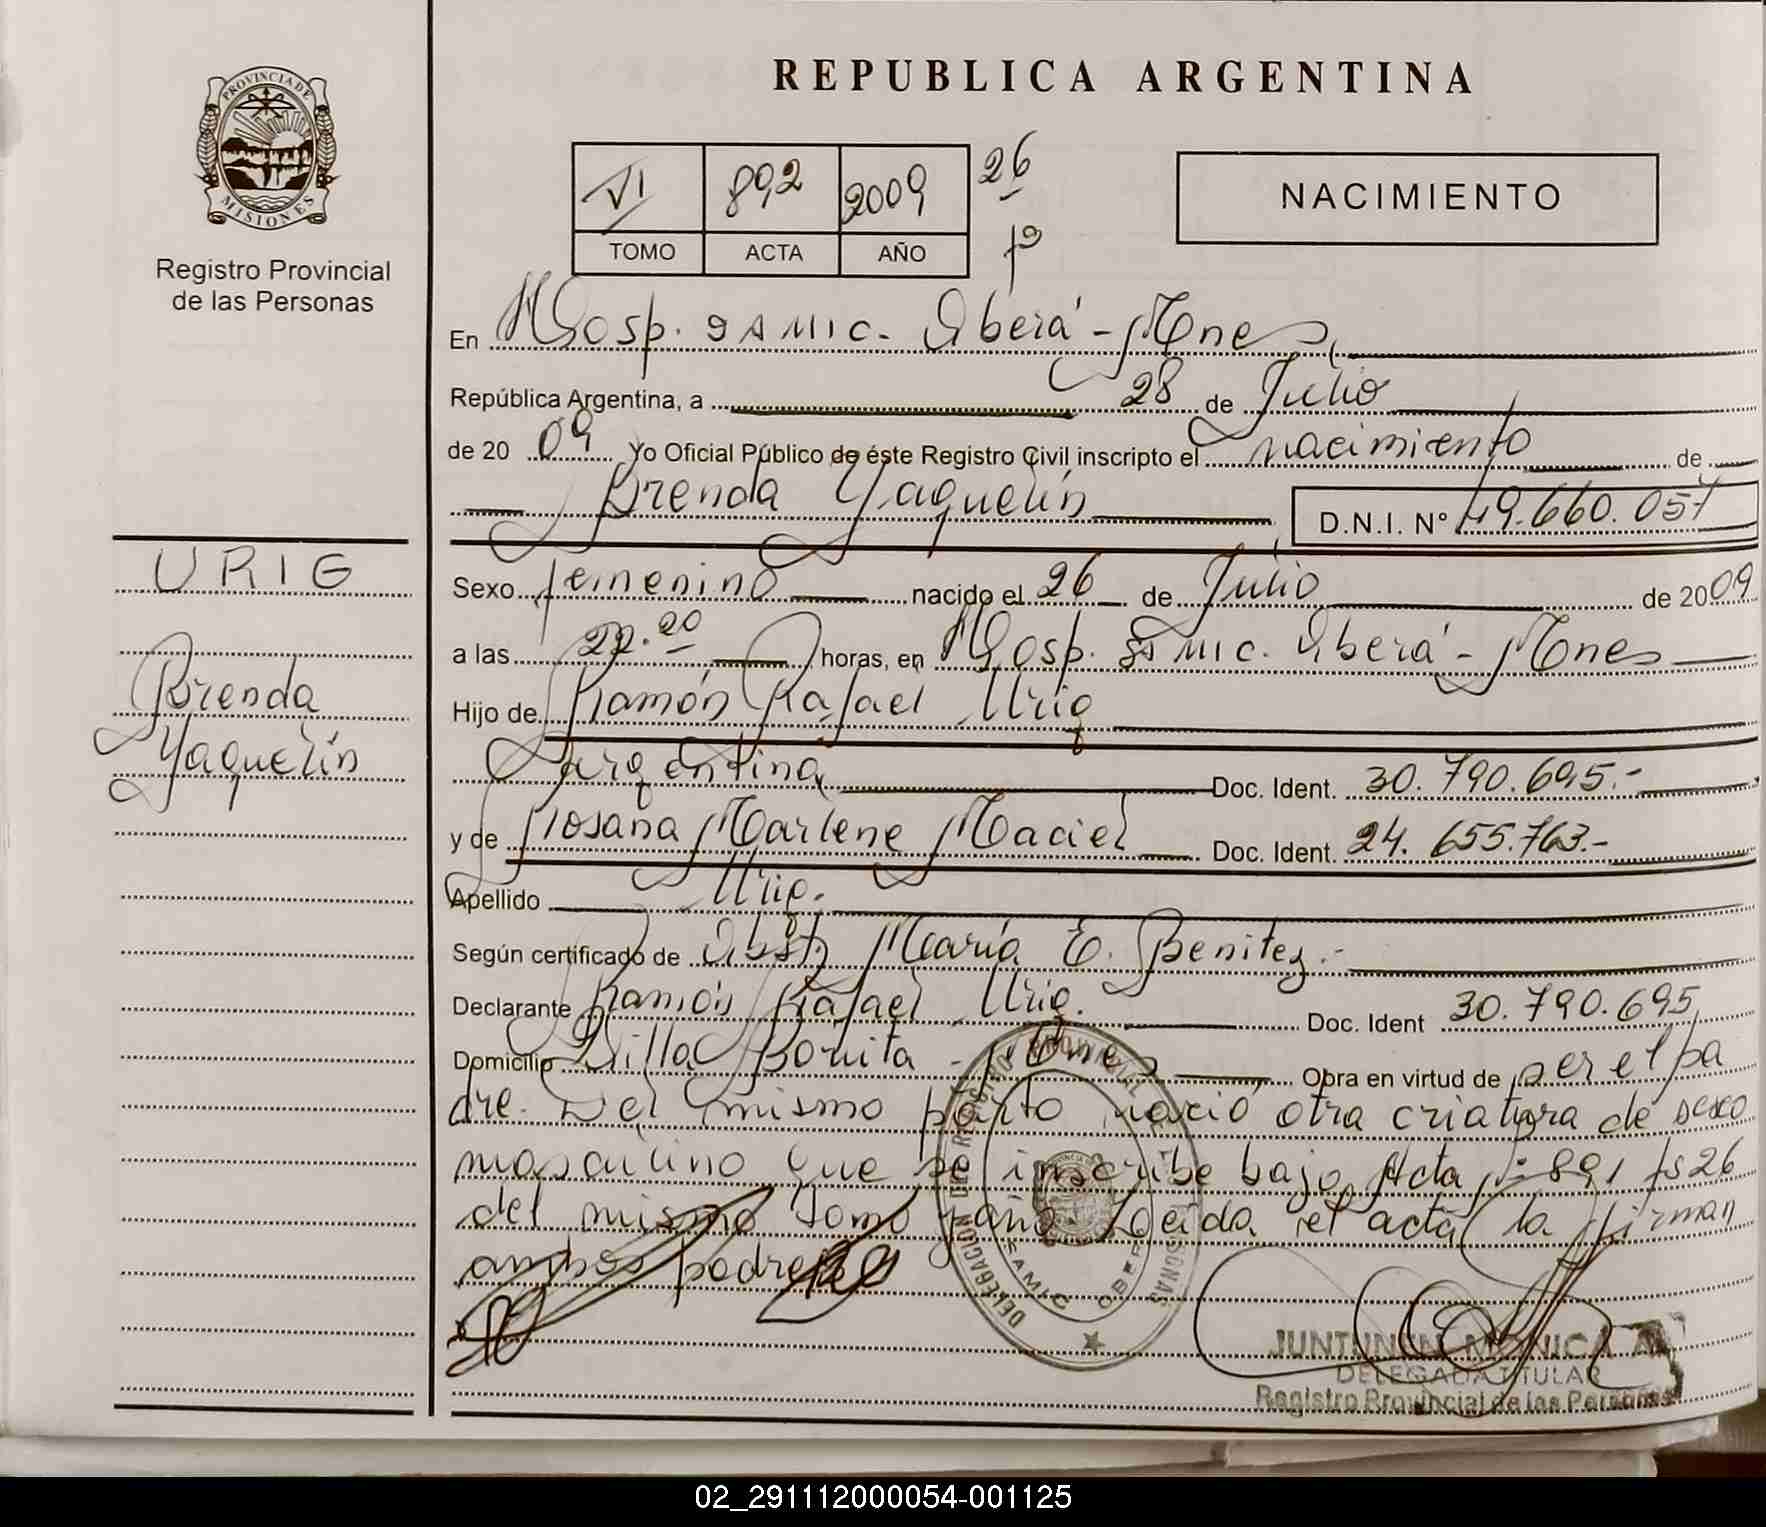 PROVINCIA DE
MISIONES
Registro Provincial
de las Personas
URIG
Brenda
Yaquelin
REPUBLICA ARGENTINA
VI 892 2009 26
TOMO ACTA AÑO fº
NACIMIENTO
En Hosp. SAMIC. Oberá - Mnes,
República Argentina, a 28 de Julio
de 2009 Yo Oficial Público de éste Registro Civil inscripto el nacimiento de
Brenda Yaquelin D.N.I. Nº 49.660.057
Sexo femenino nacido el 26 de Julio de 2009
a las 22.20 horas, en Hosp. SAMIC. Oberá - Mnes
Hijo de Ramón Rafael Urig
argentina Doc. Ident. 30.790.695.-
y de Rosana Marlene Maciel Doc. Ident. 24.655.763.-
Apellido Urig.
Según certificado de Obst. María E. Benitez.-
Declarante Ramón Rafael Urig. Doc. Ident 30.790.695
Domicilio Villa Bonita - Mnes Obra en virtud de ser el pa
dre. Del mismo parto nació otra criatura de sexo
masculino que se inscribe bajo Acta Nº 891 fs 26
del mismo tomo y año. Leida el acta la firman
ambos padres
DELEGACION DEL REGISTRO PROVINCIAL PERSONAS
SAMIC OBERA
JUNTUNEN MONICA A.
DELEGADA TITULAR
Registro Provincial de las Personas
02_291112000054-001125